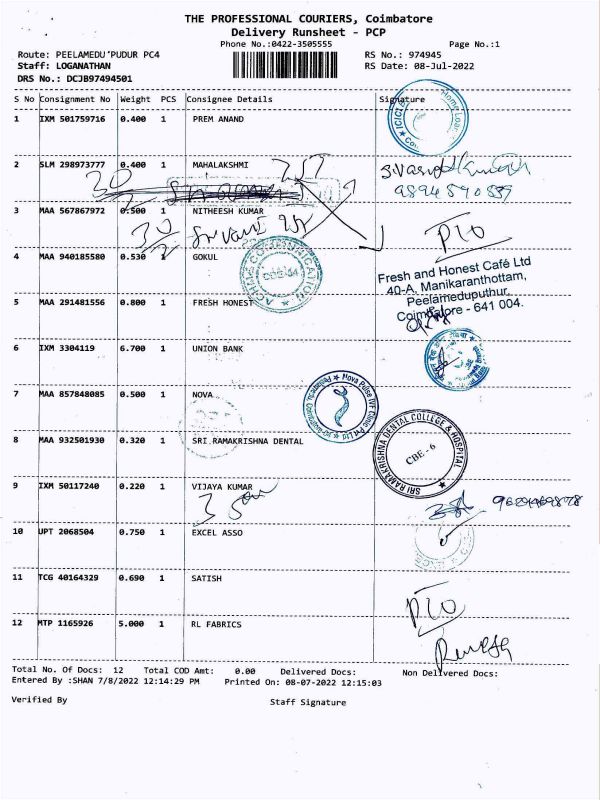 THE PROFESSIONAL COURIERS, Coimbatore
Delivery Runsheet - PCP
Phone No.:0422-3505555
Page No.:1
Route: PEELAMEDU'PUDUR PC4
RS No.: 974945
Staff: LOGANATHAN
RS Date: 08-Jul-2022
DRS No.: DCJB97494501
S No Consignment No Weight PCS Consignee Details Signature
1 IXM 501759716 0.400 1 PREM ANAND
ICICI Home Loan
2 SLM 298973777 0.400 1 MAHALAKSHMI
3 MAA 567867972 0.500 1 NITHEESH KUMAR
P/o
4 MAA 940185580 0.530 1 GOKUL
COMMUNICATION
CBE-04
Fresh and Honest Café Ltd
40-A, Manikaranthottam,
Peelameduputhur,
Coimbatore - 641 004.
5 MAA 291481556 0.800 1 FRESH HONEST
6 IXM 3304119 6.700 1 UNION BANK
7 MAA 857848085 0.500 1 NOVA
Nova Pulse IVF Clinic Pvt Ltd
8 MAA 932501930 0.320 1 SRI.RAMAKRISHNA DENTAL
SRI RAMAKRISHNA DENTAL COLLEGE & HOSPITAL
CBE - 6
9 IXM 50117240 0.220 1 VIJAYA KUMAR
10 UPT 2068504 0.750 1 EXCEL ASSO
11 TCG 40164329 0.690 1 SATISH
P/o
12 MTP 1165926 5.000 1 RL FABRICS
Total No. Of Docs: 12 Total COD Amt: 0.00 Delivered Docs: Non Delivered Docs:
Entered By :SHAN 7/8/2022 12:14:29 PM Printed On: 08-07-2022 12:15:03
Verified By
Staff Signature